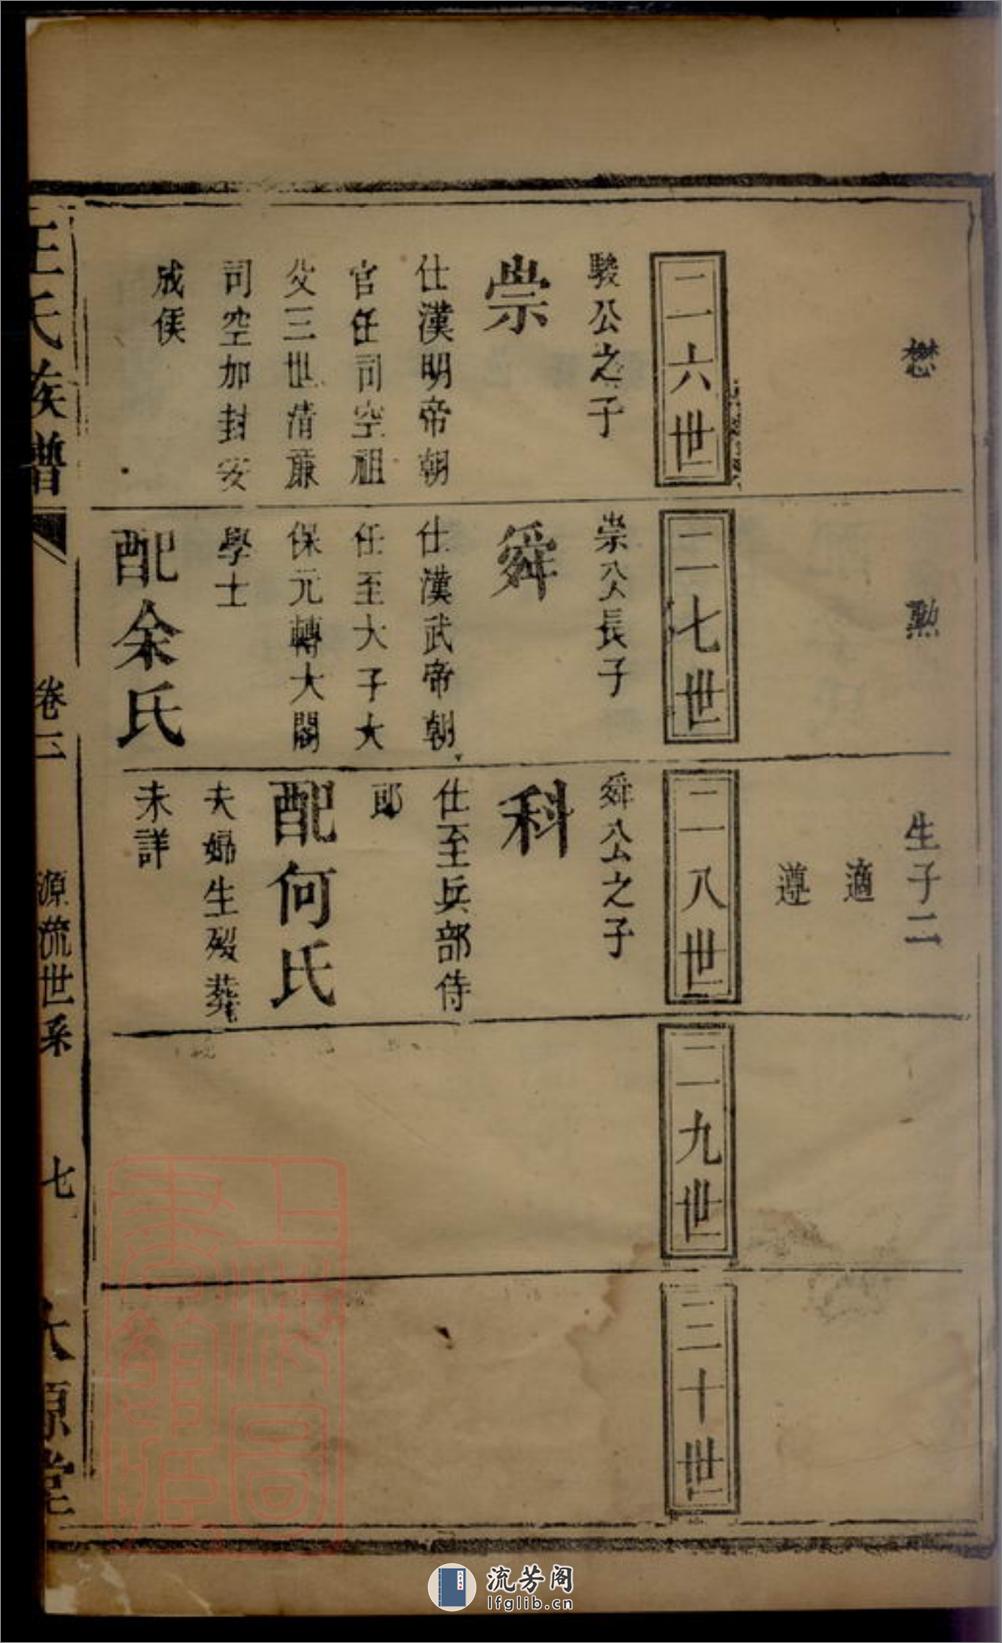 懋
勲
生子二
適
遵
二六世
駿公之子
崇
仕漢明帝朝
官任司空祖
父三世清廉
司空加封安
成侯
二七世
崇公長子
舜
仕漢武帝朝
任至大子太
保元轉大閣
學士
配余氏
二八世
舜公之子
科
仕至兵部侍
郎
配何氏
夫婦生殁葬
未詳
二九世
三十世
王氏族譜
卷二
源流世系
七
太原堂
上海圖書館藏
流芳阁
lfglib.cn